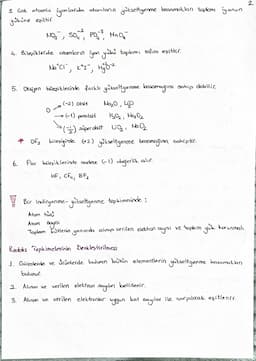 2.
3. Çok atomlu iyonlarda atomların yükseltgenme basamakları toplamı iyonun
yüküne eşittir.
NO₃⁻, SO₄⁻², PO₄⁻³, MnO₄⁻
4. Bileşiklerde atomların iyon yükü toplamı sıfıra eşittir.
Na⁺Cl⁻, K⁺I⁻,
5. Oksijen bileşiklerinde farklı yükseltgenme basamağına sahip olabilir.
O → (-2) oksit Na₂O, Li₂O
→ (-1) peroksit H₂O₂, Na₂O₂
→ (-1/2) süperoksit LiO₂, NaO₂
* OF₂ bileşiğinde (+2) yükseltgenme basamağına sahiptir.
6. Flor bileşiklerinde sadece (-1) değerlik alır.
HF, CF₄, BF₃
Bir indirgenme-yükseltgenme tepkimesinde;
Atom türü
Atom sayısı
Toplam kütlenin yanında alınıp verilen elektron sayısı ve toplam yük korunmalı
Redoks Tepkimelerinin Denkleştirilmesi
1. Girenlerde ve ürünlerde bulunan bütün elementlerin yükseltgenme basamakları
bulunur.
2. Alınan ve verilen elektron sayıları belirlenir.
3. Alınan ve verilen elektronlar uygun kat sayılar ile çarpılarak eşitlenir.